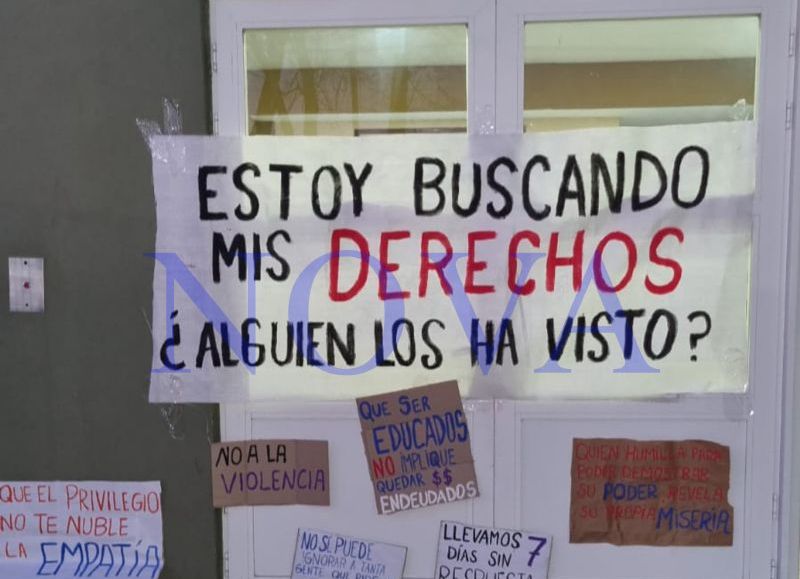 ESTOY BUSCANDO
MIS DERECHOS
¿ALGUIEN LOS HA VISTO?
NOVA
NO A LA
VIOLENCIA
QUE SER
EDUCADOS
NO IMPLIQUE
QUEDAR $$
ENDEUDADOS
QUIEN HUMILLA PARA
PODER DEMOSTRAR
SU PODER, REVELA
SU PROPIA MISERIA
QUE EL PRIVILEGIO
NO TE NUBLE
LA EMPATÍA
NO SE PUEDE
IGNORAR A TANTA
GENTE QUE PIDE
LLEVAMOS 7
DÍAS SIN
RESPUESTA